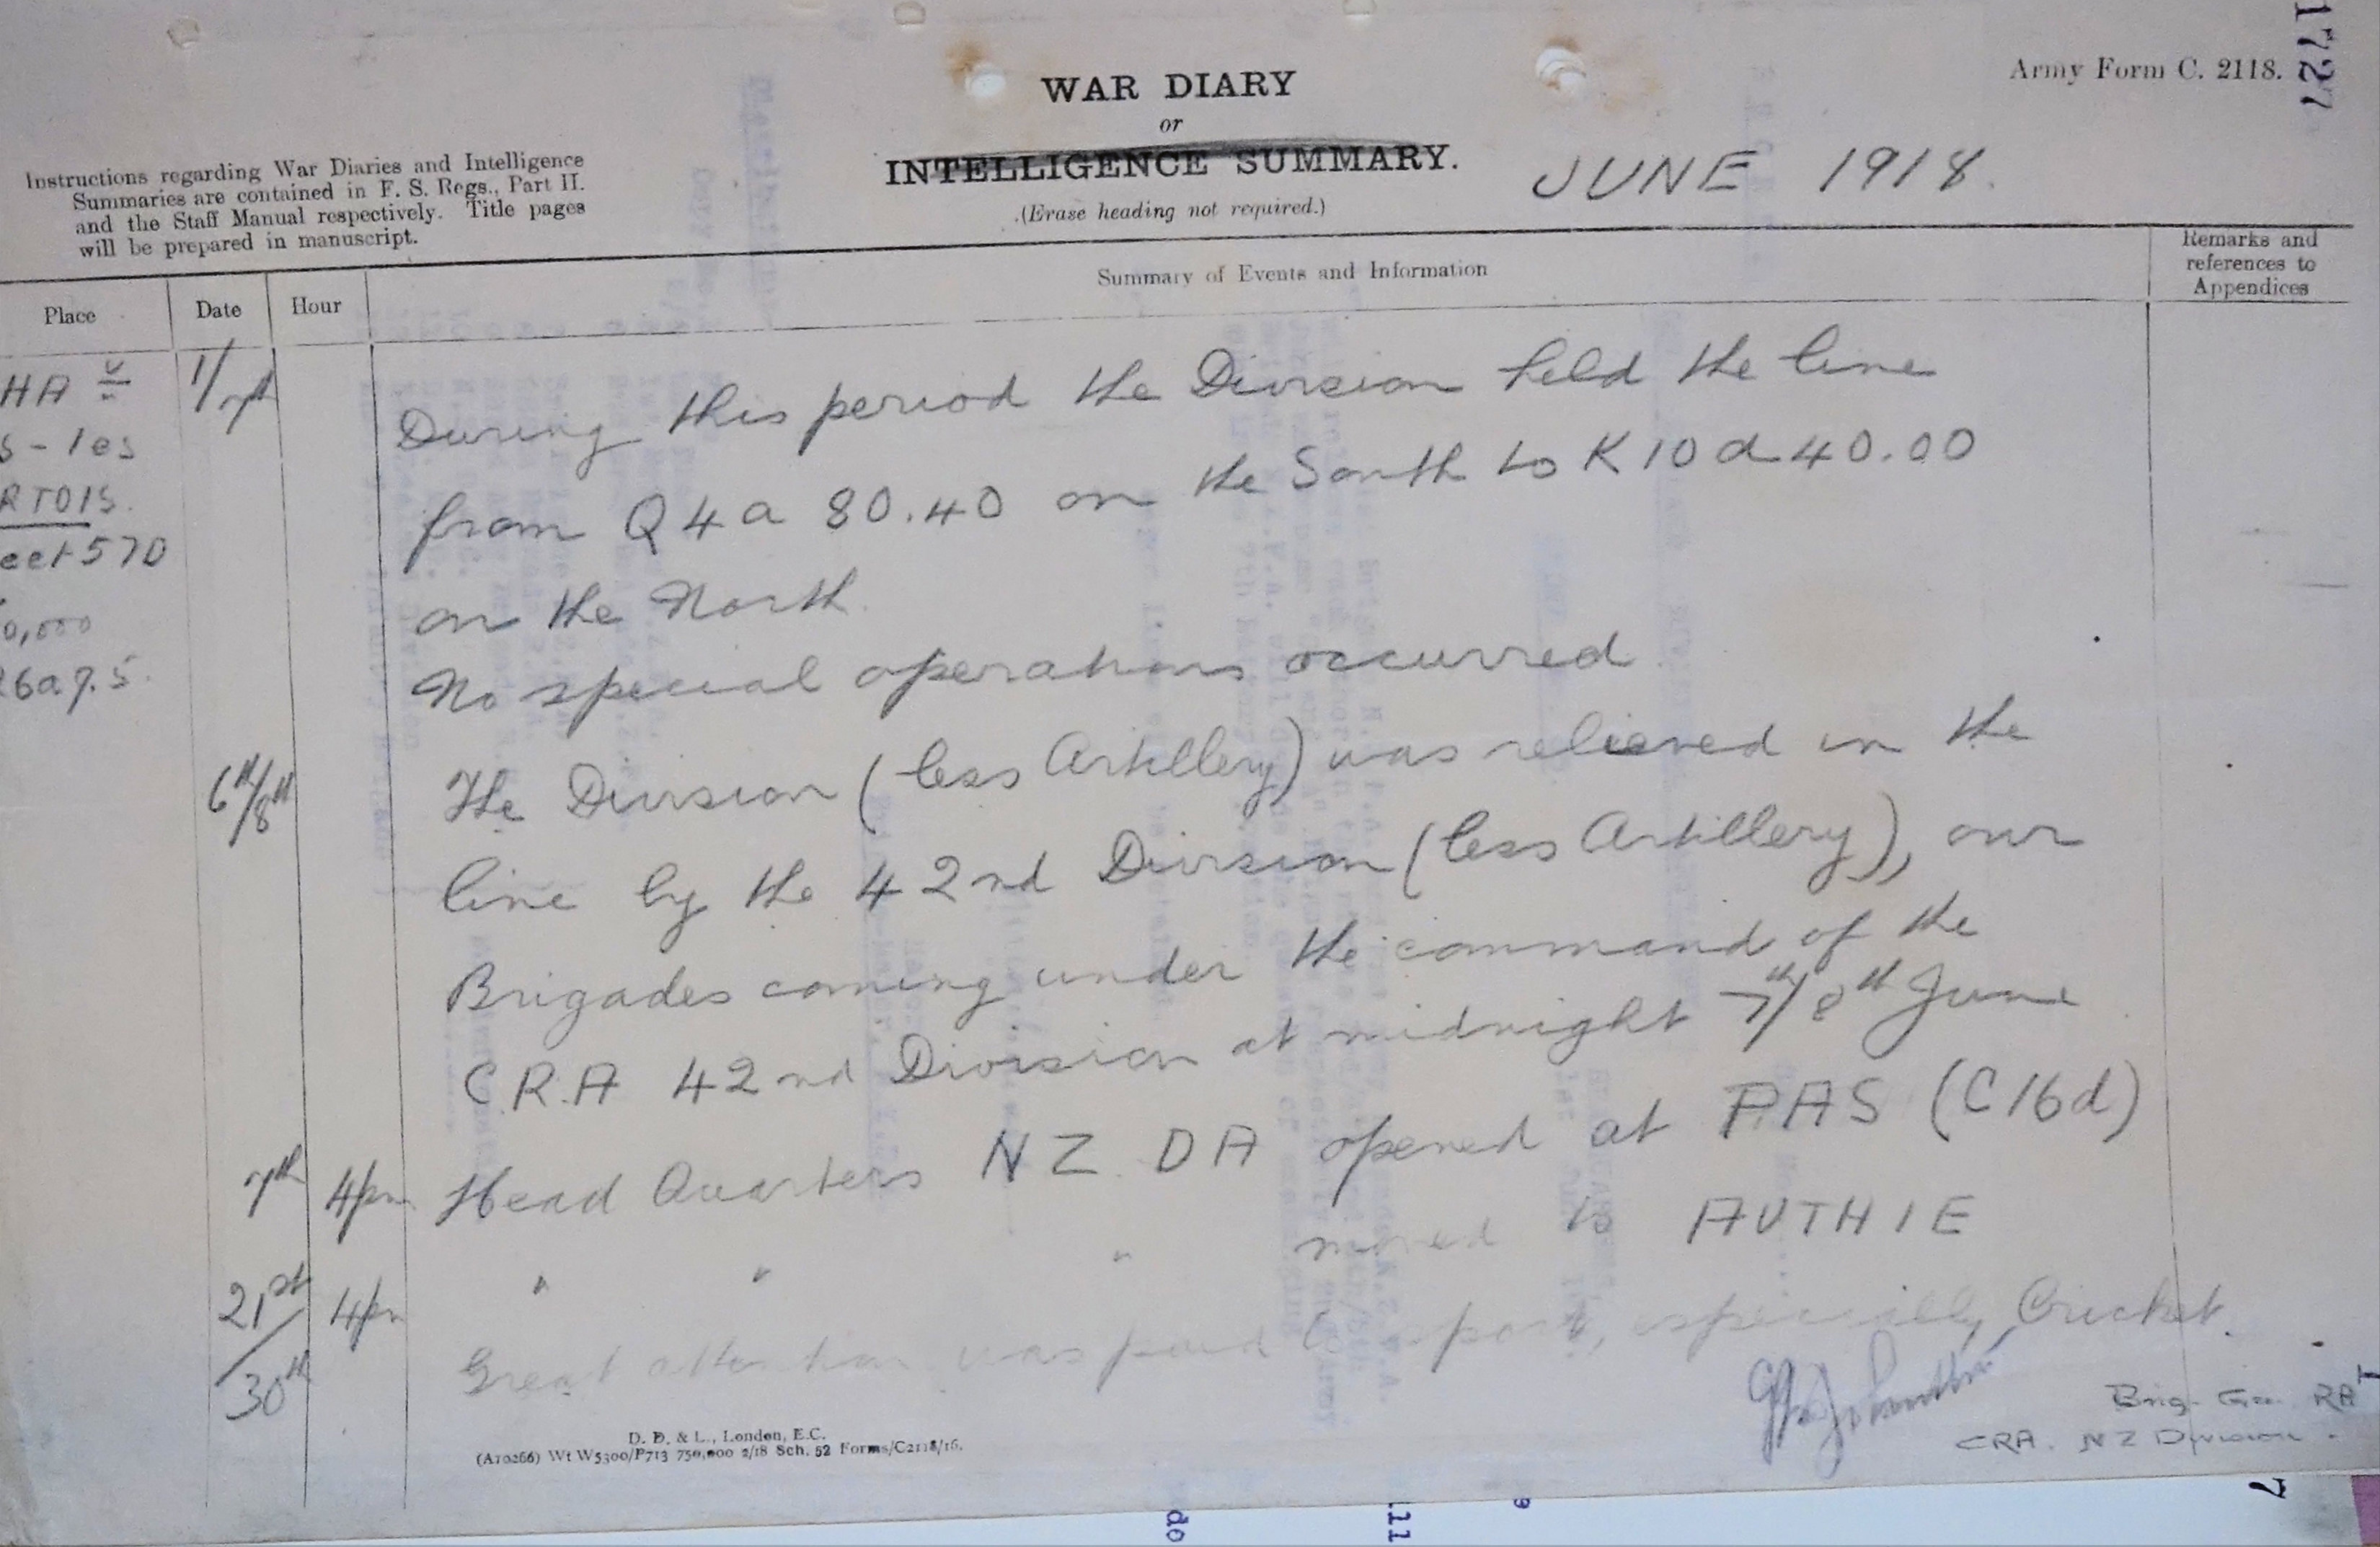 1727
Army Form C. 2118.
WAR DIARY
or
INTELLIGENCE SUMMARY.
JUNE 1918.
(Erase heading not required.)
Instructions regarding War Diaries and Intelligence
Summaries are contained in F. S. Regs., Part II.
and the Staff Manual respectively. Title pages
will be prepared in manuscript.
Place Date Hour Summary of Events and Information Remarks and
references to
Appendices
HA
S-les
RTOIS.
eet 57D
0,000
26a7.5.
1/7th During this period the Division held the line
from Q4a 80.40 on the South to K10d40.00
on the North.
No special operations occurred
6th/8th The Division (less Artillery) was relieved in the
line by the 42nd Division (less Artillery), our
Brigades coming under the command of the
C.R.A 42nd Division at midnight 7th/8th June
7th 4pm Head Quarters NZ. DA opened at PAS (C16d)
21st 4pm " " " moved to AUTHIE
30th Great attention was paid to sport, especially Cricket.
Brig. Gen. RA
CRA. NZ Division.
D. D. & L., London, E.C.
(A10266) Wt W5300/P713 750,000 2/18 Sch. 52 Forms/C2118/16.